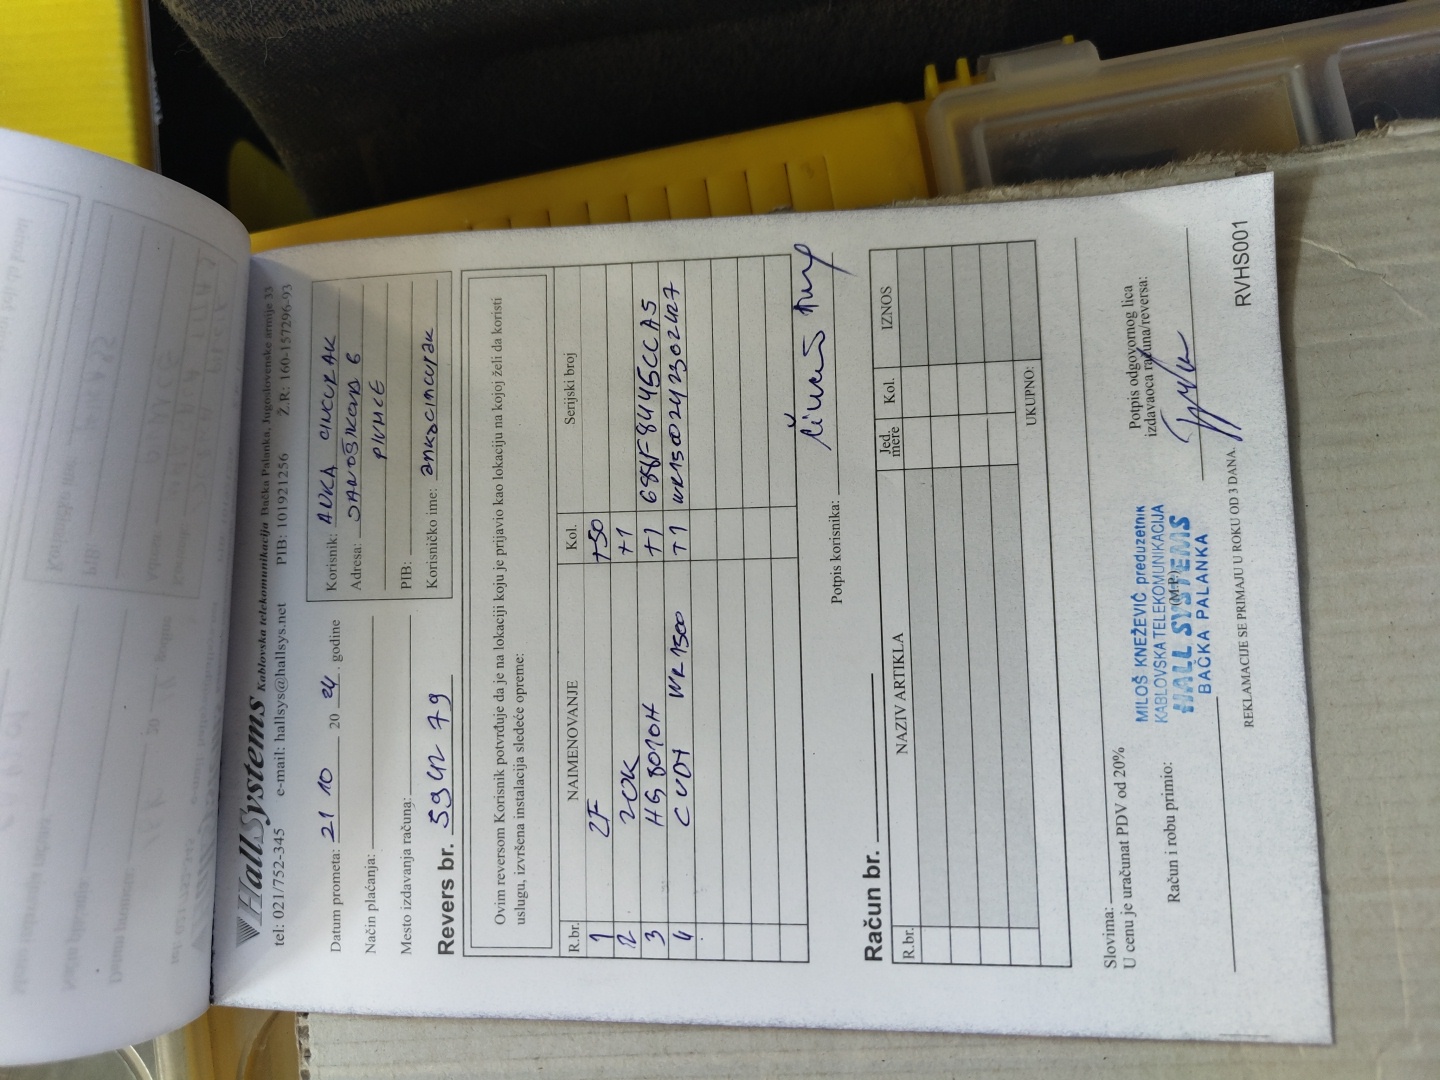 HallSystems Kablovska telekomunikacija Bačka Palanka, Jugoslovenske armije 33
tel: 021/752-345 e-mail: hallsys@hallsys.net PIB: 101921256 Ž.R: 160-157296-93
Datum prometa: 21 10 20 24. godine
Način plaćanja:
Mesto izdavanja računa:
Korisnik: ANKA
Adresa: 6
PIVNICE
PIB:
Korisničko ime: ankacincurak
Revers br. 59 42 79
Ovim reversom Korisnik potvrđuje da je na lokaciji koju je prijavio kao lokaciju na kojoj želi da koristi
uslugu, izvršena instalacija sledeće opreme:
R.br. NAIMENOVANJE Kol. Serijski broj
1 2F +50
2 2OK +1
3 HG8010H +1 688F8445CCA5
4 CUDY WR1500 +1 WR1500242302427
Potpis korisnika:
Račun br.
R.br. NAZIV ARTIKLA Jed. mere Kol. IZNOS
UKUPNO:
Slovima:
U cenu je uračunat PDV od 20%
Račun i robu primio:
MILOŠ KNEŽEVIĆ preduzetnik
KABLOVSKA TELEKOMUNIKACIJA
HALL SYSTEMS
(M.P.)
BAČKA PALANKA
Potpis odgovornog lica
izdavaoca računa/reversa:
REKLAMACIJE SE PRIMAJU U ROKU OD 3 DANA.
RVHS001